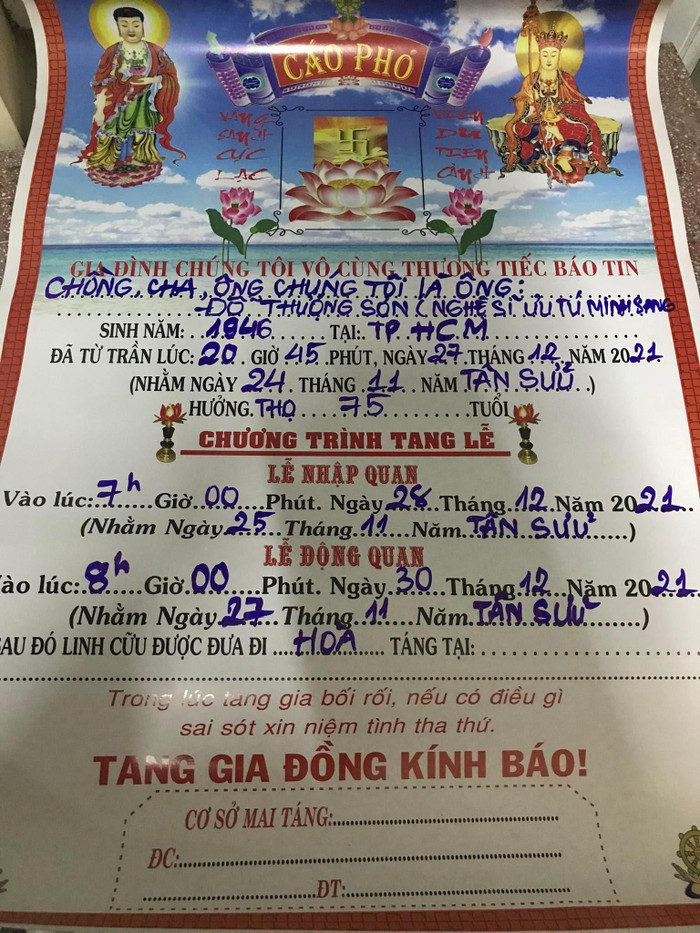 CÁO PHÓ
VÃNG SANH CỰC LẠC
DU TIÊN CẢNH
GIA ĐÌNH CHÚNG TÔI VÔ CÙNG THƯƠNG TIẾC BÁO TIN
CHỒNG, CHA, ÔNG CHÚNG TÔI LÀ ÔNG:
- ĐỖ THƯỢNG SƠN (NGHỆ SĨ ƯU TÚ MINH SANG
SINH NĂM: 1946 TẠI: TP. HCM
ĐÃ TỪ TRẦN LÚC: 20 GIỜ 45 PHÚT, NGÀY 27 THÁNG 12 NĂM 2021
(NHẰM NGÀY 24 THÁNG 11 NĂM TÂN SỬU)
HƯỞNG THỌ 75 TUỔI
CHƯƠNG TRÌNH TANG LỄ
LỄ NHẬP QUAN
Vào lúc: 7h Giờ 00 Phút. Ngày 28 Tháng 12 Năm 2021
(Nhằm Ngày 25 Tháng 11 Năm TÂN SỬU)
LỄ ĐỘNG QUAN
ào lúc: 8h Giờ 00 Phút. Ngày 30 Tháng 12 Năm 2021
(Nhằm Ngày 27 Tháng 11 Năm TÂN SỬU)
SAU ĐÓ LINH CỮU ĐƯỢC ĐƯA ĐI HOẢ TÁNG TẠI:
Trong lúc tang gia bối rối, nếu có điều gì
sai sót xin niệm tình tha thứ.
TANG GIA ĐỒNG KÍNH BÁO!
CƠ SỞ MAI TÁNG:
ĐC:
ĐT: